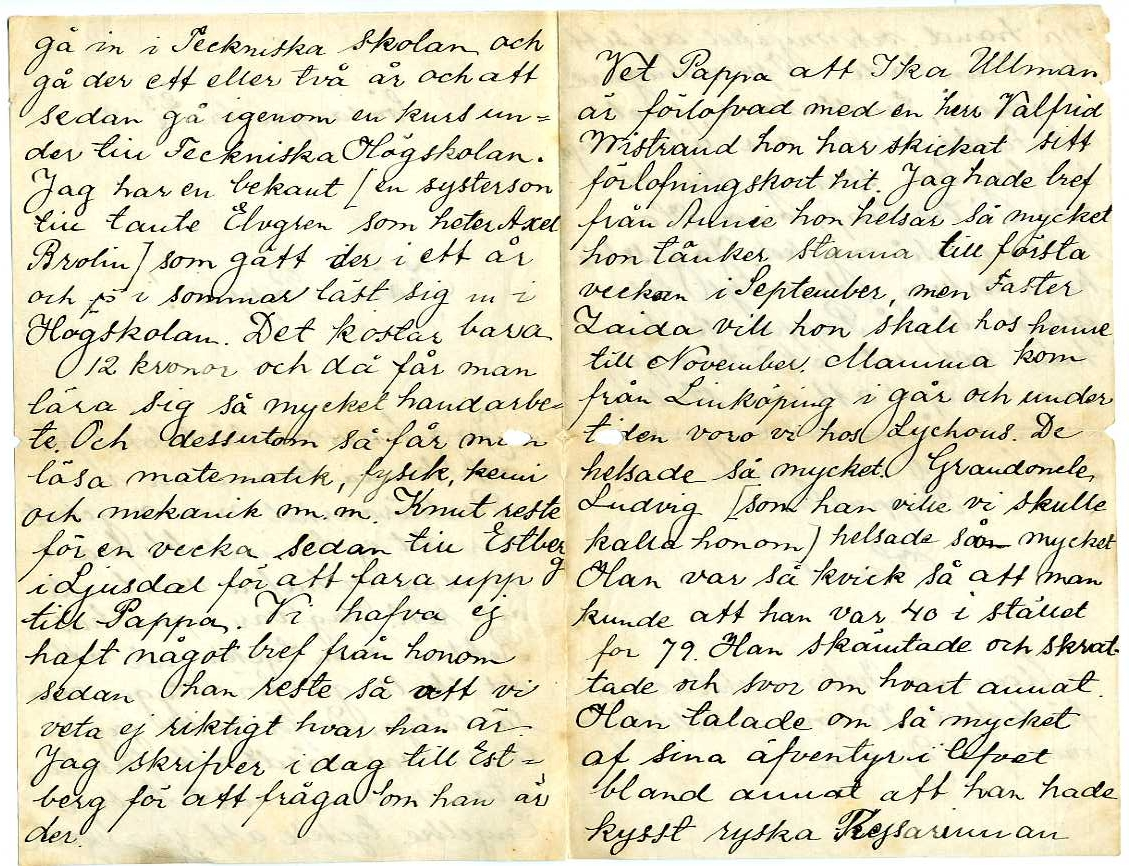 gå in i Teckniska skolan och
gå der ett eller två år och att
sedan gå igenom en kurs un=
der tiu Teckniska Högskolan.
Jag har en bekant [en systerson
tiu tante Elvgren som heter Axel
Brolin] som gått der i ett år
och i sommar läst sig in i
Högskolan. Det kostar bara
12 kronor och då får man
lära sig så mycket handarbe=
te. Och dessutom så får man
läsa matematik, fysik, kemi
och mekanik m. m. Knut reste
för en vecka sedan tiu Estberg
i Ljusdal för att fara upp
till Pappa. Vi hafva ej
haft något bref från honom
sedan han reste så att vi
veta ej riktigt hvar han är.
Jag skrifver i dag till Est=
berg för att fråga om han är
der.
Vet Pappa att Ika Ullman
är förlofvad med en herr Valfrid
Wistrand hon har skickat sitt
förlofningskort hit. Jag hade bref
från Annie hon helsar så mycket
hon tänker stanna till första
veckan i September, men Faster
Zaida vill hon skall hos henne
till November. Mamma kom
från Linköping i går och under
tiden voro vi hos Lychous. De
helsade så mycket. Grandoncle
Ludvig [som han ville vi skulle
kalla honom] helsade så mycket
Han var så kvick så att man
kunde att han var 40 i stället
for 79. Han skämtade och skrat-
tade och svor om hvart annat.
Han talade om så mycket
af sina äfventyr i lifvet
bland annat att han hade
kysst ryska Kejsarinnan